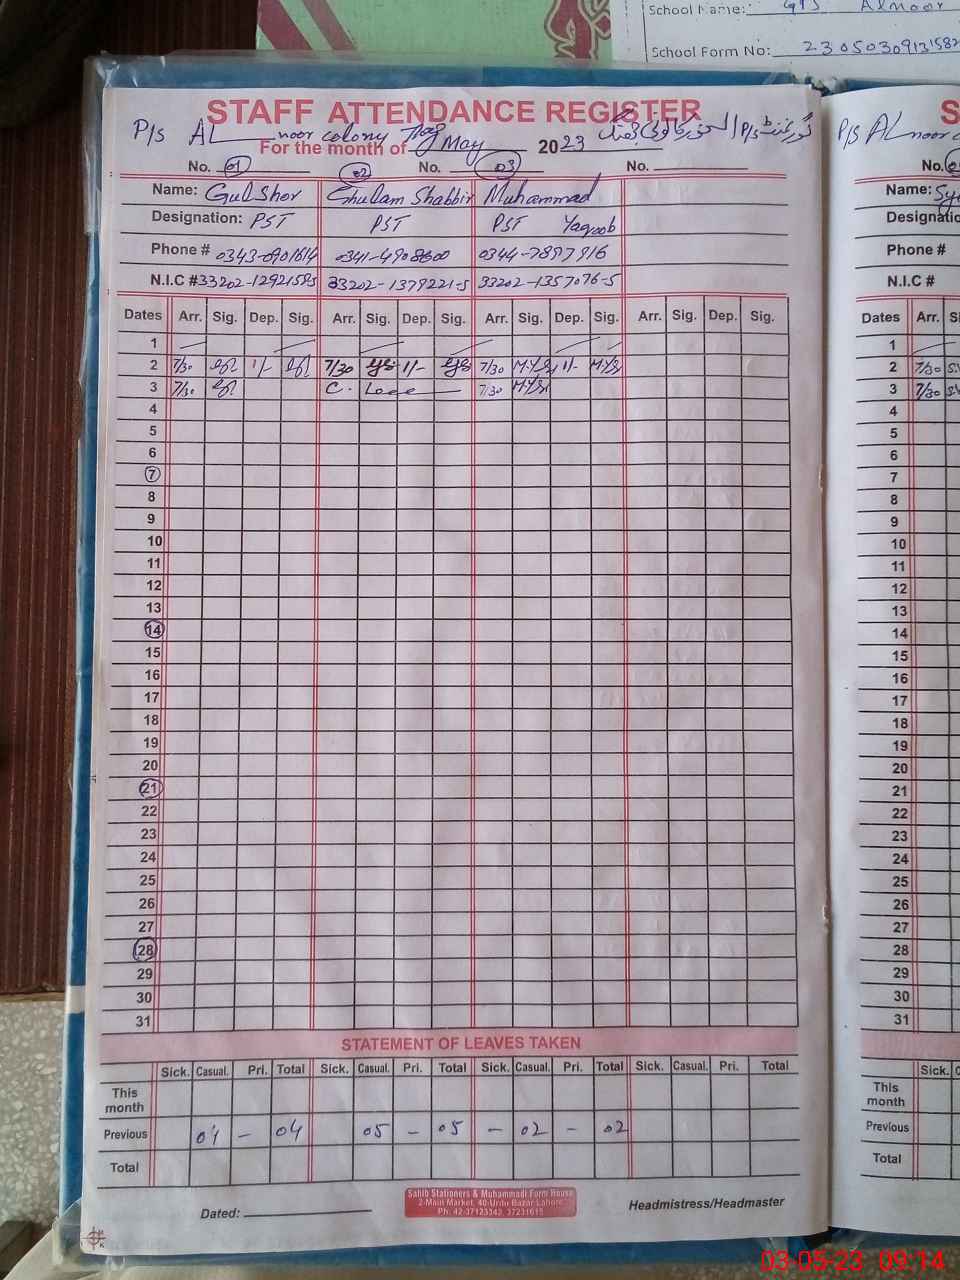 School Name: GPS Almoor
School Form No: 23050309131582
STAFF ATTENDANCE REGISTER
P/s AL noor colony Jhang
For the month of May 2023
No. 01 02 No. 03 No.
Name: Gulsher Ghulam Shabbir Muhammad
Designation: PST PST PST Yaqoob
Phone # 0343-0901614 0341-4908600 0344-7897916
N.I.C # 33202-1379221-5 33202-1357076-5
Dates Arr. Sig. Dep. Sig. Arr. Sig. Dep. Sig. Arr. Sig. Dep. Sig. Arr. Sig. Dep. Sig.
1
2 7/30 1/- 7/30 1/- 7/30 M.Y 1/- M.Y
3 7/30 C. 7/30 M.Y
4
5
6
7
8
9
10
11
12
13
14
15
16
17
18
19
20
21
22
23
24
25
26
27
28
29
30
31
STATEMENT OF LEAVES TAKEN
Sick. Casual. Pri. Total Sick. Casual. Pri. Total Sick. Casual. Pri. Total Sick. Casual. Pri. Total
This month
Previous 04 - 04 05 - 05 - 02 - 02
Total
Sahib Stationers & Muhammadi Form House
2-Main Market, 40-Urdu Bazar Lahore.
Ph: 42-37123342, 37231615
Dated: Headmistress/Headmaster
S
P/s AL noor
No.
Name: Sy
Designatio
Phone #
N.I.C #
Dates Arr. Si
1
2 7/30
3 7/30
4
5
6
7
8
9
10
11
12
13
14
15
16
17
18
19
20
21
22
23
24
25
26
27
28
29
30
31
Sick. C
This month
Previous
Total
03-05-23 09:14